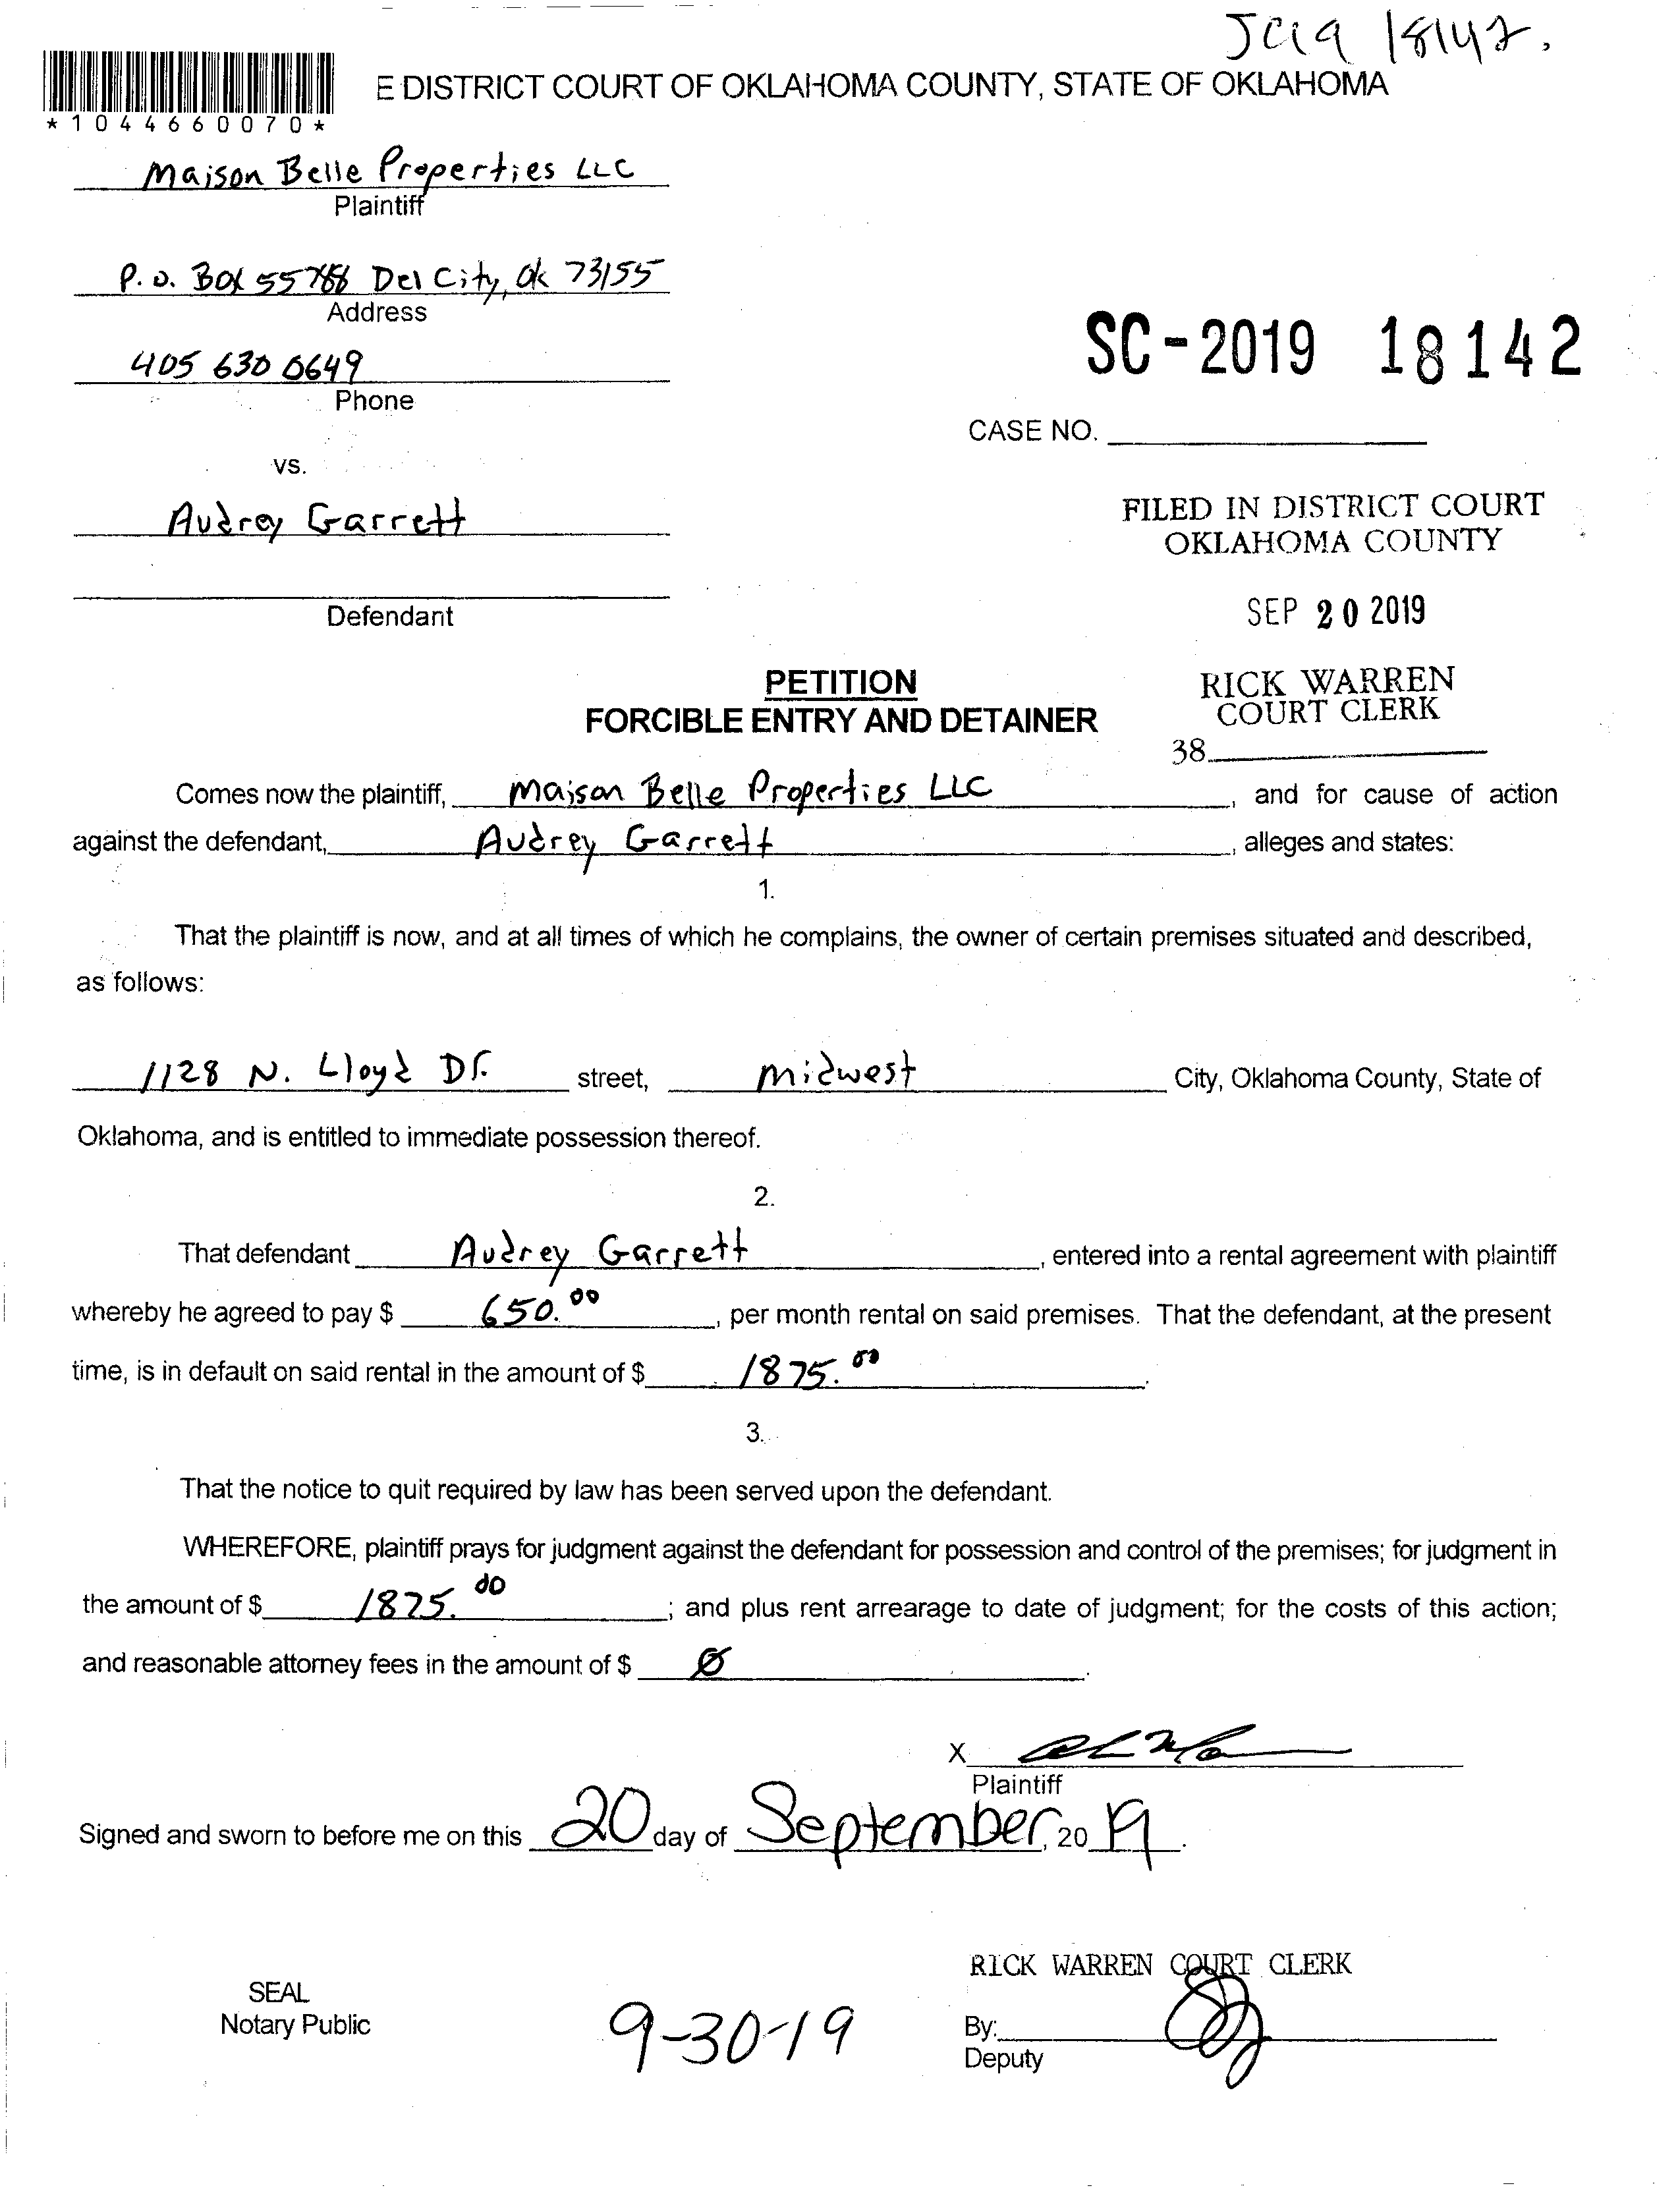 18142.
E DISTRICT COURT OF OKLAHOMA COUNTY, STATE OF OKLAHOMA
*1044660070*
Maison Belle Properties LLC
Plaintiff
P.O. Box 55788 Del City, Ok 73155
Address
405 630 0649
Phone
SC-2019 18142
CASE NO.
vs.
Audrey Garrett
Defendant
FILED IN DISTRICT COURT
OKLAHOMA COUNTY
SEP 20 2019
RICK WARREN
COURT CLERK
38
PETITION
FORCIBLE ENTRY AND DETAINER
Comes now the plaintiff, Maison Belle Properties LLC, and for cause of action
against the defendant, Audrey Garrett, alleges and states:
1.
That the plaintiff is now, and at all times of which he complains, the owner of certain premises situated and described,
as follows:
1128 N. Lloyd Dr. street, Midwest City, Oklahoma County, State of
Oklahoma, and is entitled to immediate possession thereof.
2.
That defendant Audrey Garrett, entered into a rental agreement with plaintiff
whereby he agreed to pay $ 650.00, per month rental on said premises. That the defendant, at the present
time, is in default on said rental in the amount of $ 1875.00.
3.
That the notice to quit required by law has been served upon the defendant.
WHEREFORE, plaintiff prays for judgment against the defendant for possession and control of the premises; for judgment in
the amount of $ 1875.00; and plus rent arrearage to date of judgment; for the costs of this action;
and reasonable attorney fees in the amount of $ Ø.
X
Plaintiff
Signed and sworn to before me on this 20 day of September, 2019.
RICK WARREN COURT CLERK
SEAL
Notary Public
9-30-19
By:
Deputy